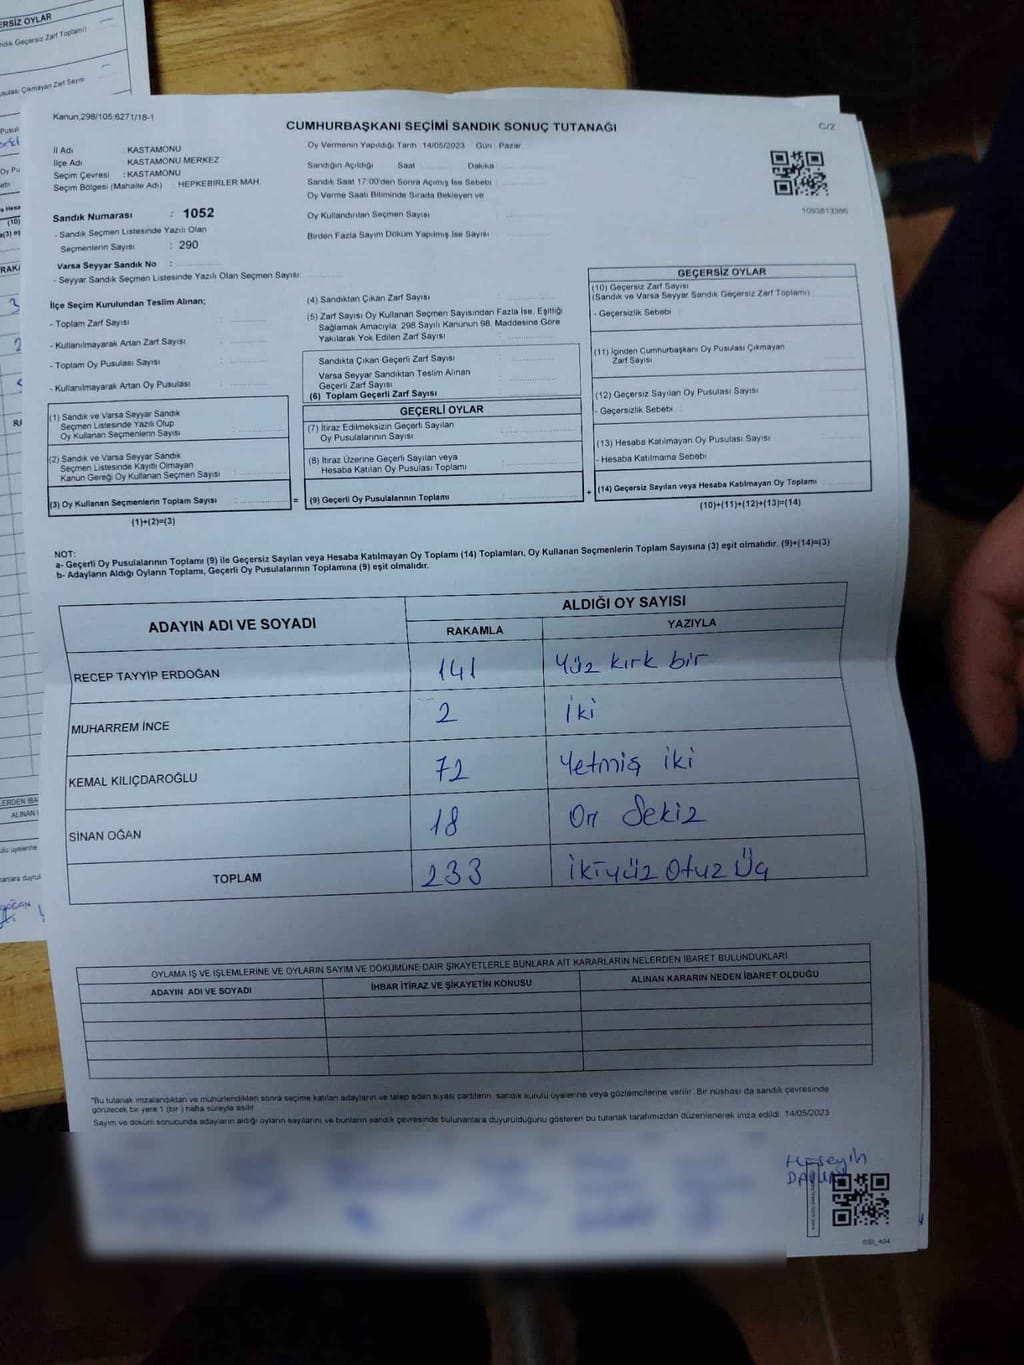 ERSİZ OYLAR
Kanun,298/105,6271/18-1
CUMHURBAŞKANI SEÇİMİ SANDIK SONUÇ TUTANAĞI
C/2
İl Adı : KASTAMONU
İlçe Adı KASTAMONU MERKEZ
Seçim Çevresi : KASTAMONU
Seçim Bölgesi (Mahalle Adı) : HEPKEBİRLER MAH.
Sandık Numarası : 1052
- Sandık Seçmen Listesinde Yazılı Olan
Seçmenlerin Sayısı : 290
Varsa Seyyar Sandık No :
- Seyyar Sandık Seçmen Listesinde Yazılı Olan Seçmen Sayısı:
Oy Vermenin Yapıldığı Tarih 14/05/2023 Gün Pazar
Sandığın Açıldığı Saat Dakika
Sandık Saat 17:00'den Sonra Açılmış İse Sebebi
Oy Verme Saati Bitiminde Sırada Bekleyen ve
Oy Kullandırılan Seçmen Sayısı
Birden Fazla Sayım Döküm Yapılmış İse Sayısı
1093813386
İlçe Seçim Kurulundan Teslim Alınan;
- Toplam Zarf Sayısı
- Kullanılmayarak Artan Zarf Sayısı
- Toplam Oy Pusulası Sayısı
- Kullanılmayarak Artan Oy Pusulası
(1) Sandık ve Varsa Seyyar Sandık
Seçmen Listesinde Yazılı Olup
Oy Kullanan Seçmenlerin Sayısı
(2) Sandık ve Varsa Seyyar Sandık
Seçmen Listesinde Kayıtlı Olmayan
Kanun Gereği Oy Kullanan Seçmen Sayısı
(3) Oy Kullanan Seçmenlerin Toplam Sayısı
(1)+(2)=(3)
(4) Sandıktan Çıkan Zarf Sayısı
(5) Zarf Sayısı Oy Kullanan Seçmen Sayısından Fazla İse, Eşitliği
Sağlamak Amacıyla; 298 Sayılı Kanunun 98. Maddesine Göre
Yakılarak Yok Edilen Zarf Sayısı
Sandıkta Çıkan Geçerli Zarf Sayısı
Varsa Seyyar Sandıktan Teslim Alınan
Geçerli Zarf Sayısı
(6) Toplam Geçerli Zarf Sayısı
GEÇERLİ OYLAR
(7) İtiraz Edilmeksizin Geçerli Sayılan
Oy Pusulalarının Sayısı
(8) İtiraz Üzerine Geçerli Sayılan veya
Hesaba Katılan Oy Pusulası Toplamı
= (9) Geçerli Oy Pusulalarının Toplamı
GEÇERSİZ OYLAR
(10) Geçersiz Zarf Sayısı
(Sandık ve Varsa Seyyar Sandık Geçersiz Zarf Toplamı)
- Geçersizlik Sebebi
(11) İçinden Cumhurbaşkanı Oy Pusulası Çıkmayan
Zarf Sayısı
(12) Geçersiz Sayılan Oy Pusulası Sayısı
- Geçersizlik Sebebi
(13) Hesaba Katılmayan Oy Pusulası Sayısı
- Hesaba Katılmama Sebebi
+ (14) Geçersiz Sayılan veya Hesaba Katılmayan Oy Toplamı
(10)+(11)+(12)+(13)=(14)
NOT:
a- Geçerli Oy Pusulalarının Toplamı (9) ile Geçersiz Sayılan veya Hesaba Katılmayan Oy Toplamı (14) Toplamları, Oy Kullanan Seçmenlerin Toplam Sayısına (3) eşit olmalıdır. (9)+(14)=(3)
b- Adayların Aldığı Oyların Toplamı, Geçerli Oy Pusulalarının Toplamına (9) eşit olmalıdır.
ADAYIN ADI VE SOYADI
ALDIĞI OY SAYISI
RAKAMLA YAZIYLA
RECEP TAYYİP ERDOĞAN 141 Yüz kırk bir
MUHARREM İNCE 2 İki
KEMAL KILIÇDAROĞLU 72 Yetmiş iki
SİNAN OĞAN 18 On Sekiz
TOPLAM 233 İkiyüz Otuz Üç
OYLAMA İŞ VE İŞLEMLERİNE VE OYLARIN SAYIM VE DÖKÜMÜNE DAİR ŞİKAYETLERLE BUNLARA AİT KARARLARIN NELERDEN İBARET BULUNDUKLARI
ADAYIN ADI VE SOYADI İHBAR İTİRAZ VE ŞİKAYETİN KONUSU ALINAN KARARIN NEDEN İBARET OLDUĞU
"Bu tutanak imzalandıktan ve mühürlendikten sonra seçime katılan adayların ve talep eden siyasi partilerin sandık kurulu üyelerine veya gözlemcilerine verilir. Bir nüshası da sandık çevresinde
görülecek bir yere 1 (bir ) hafta süreyle asılır
Sayım ve döküm sonucunda adayların aldığı oyların sayılarını ve bunların sandık çevresinde bulunanlara duyurulduğunu gösteren bu tutanak tarafımızdan düzenlenerek imza edildi. 14/05/2023
Hüseyin
SSI_404